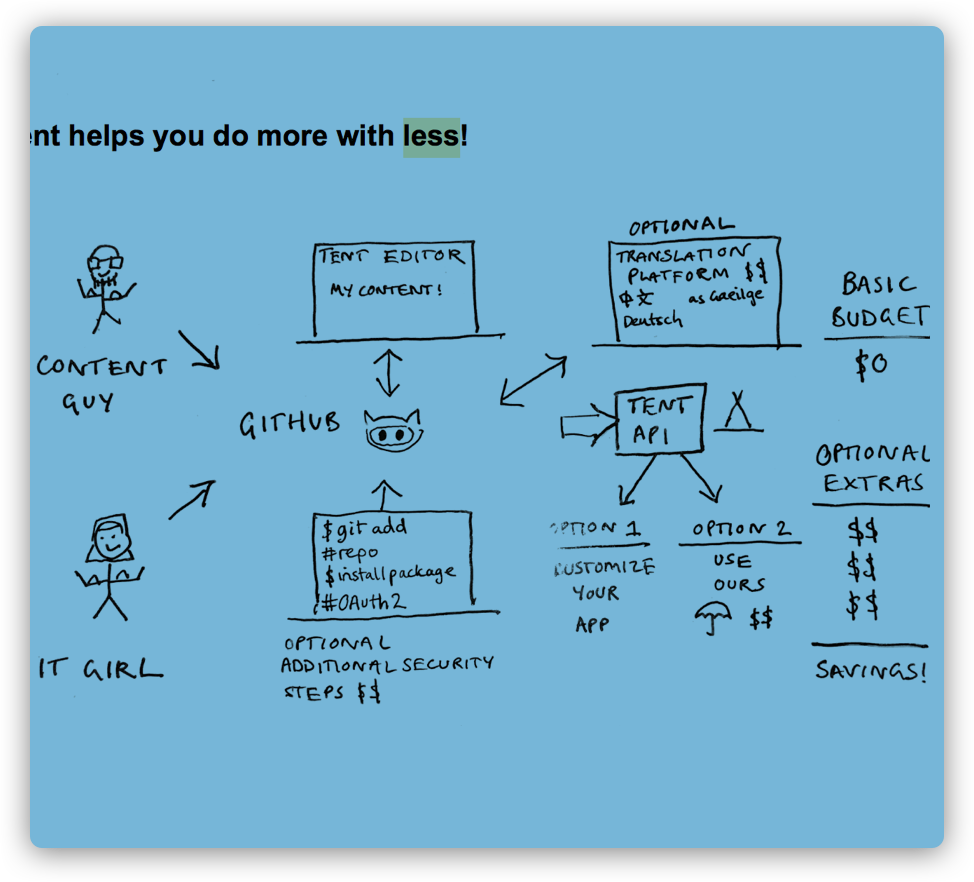 ent helps you do more with less!
CONTENT
GUY
IT GIRL
TENT EDITOR
MY CONTENT!
GITHUB
$ git add
#repo
$ install package
#OAuth2
OPTIONAL
ADDITIONAL SECURITY
STEPS $$
OPTIONAL
TRANSLATION
PLATFORM $$
中文 as Gaeilge
Deutsch
TENT
API
OPTION 1
CUSTOMIZE
YOUR
APP
OPTION 2
USE
OURS
$$
BASIC
BUDGET
$0
OPTIONAL
EXTRAS
$$
$$
$$
SAVINGS!